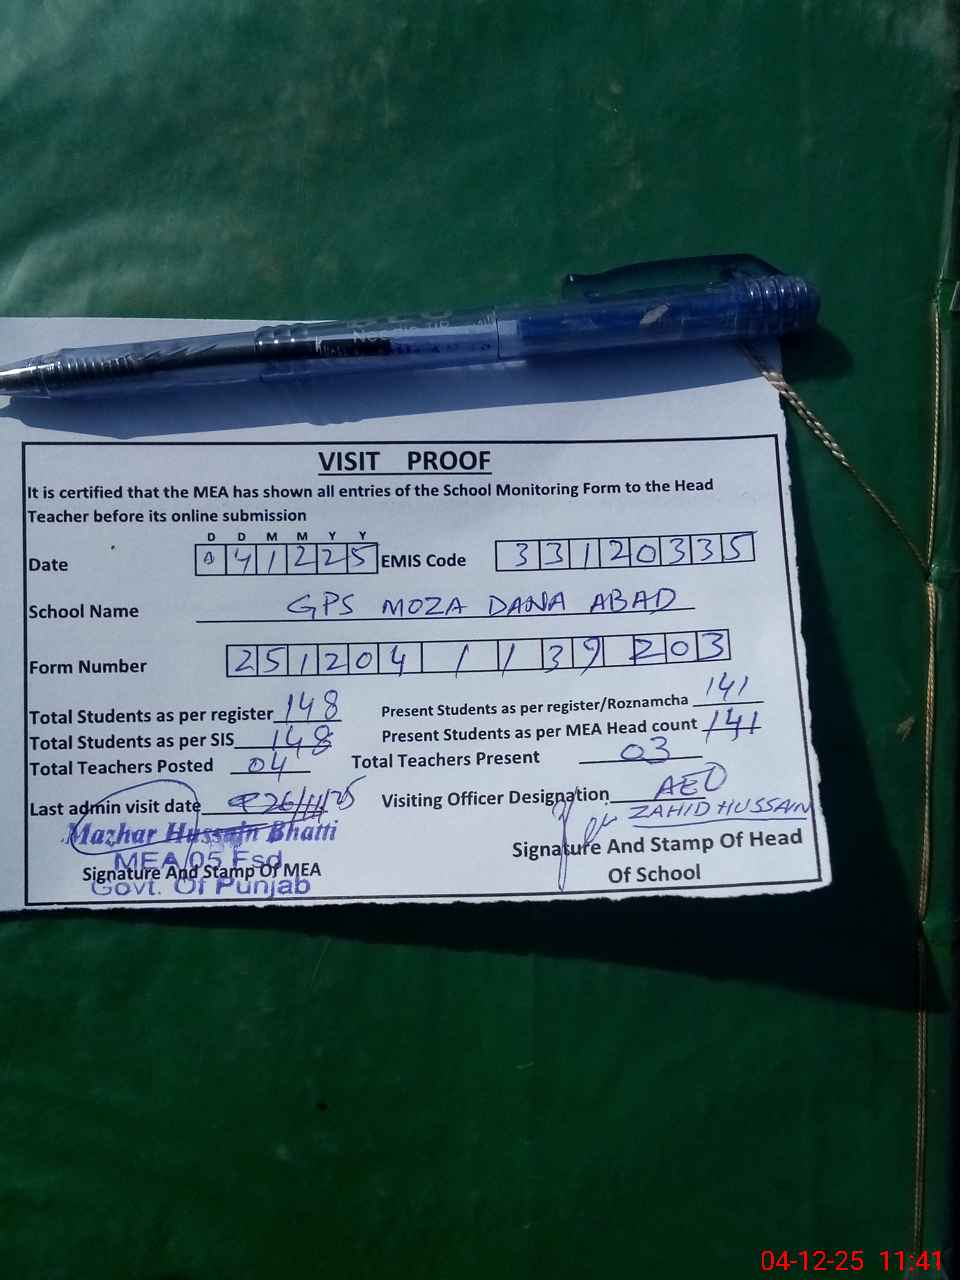 VISIT PROOF
It is certified that the MEA has shown all entries of the School Monitoring Form to the Head
Teacher before its online submission
D D M M Y Y
Date 041225 EMIS Code 33120335
School Name GPS MOZA DANA ABAD
Form Number 251204 / / 39 203
Total Students as per register 148 Present Students as per register/Roznamcha 141
Total Students as per SIS 148 Present Students as per MEA Head count 141
Total Teachers Posted 04 Total Teachers Present 03
Last admin visit date 26/11/25 Visiting Officer Designation AEO
ZAHID HUSSAIN
Mazhar Hussain Bhatti
MEA/05 Fsd
Govt. Of Punjab
Signature And Stamp Of MEA
Signature And Stamp Of Head
Of School
04-12-25 11:41